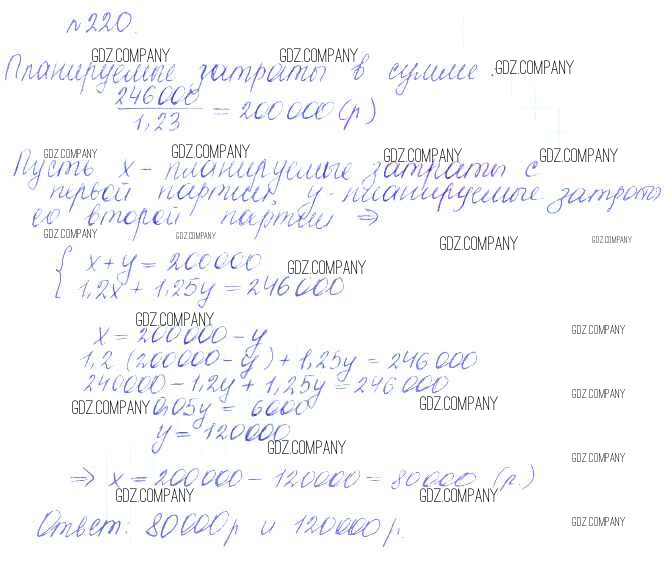 №220.
Планируемые затраты в сумме:
246000/1,23 = 200000(р)
Пусть x - планируемые затраты с
первой партии, y - планируемые затраты
со второй партии ⇒
{ x + y = 200000
1,2x + 1,25y = 246000
x = 200000 - y
1,2 (200000 - y) + 1,25y = 246000
240000 - 1,2y + 1,25y = 246000
0,05y = 6000
y = 120000
⇒ x = 200000 - 120000 = 80000 (р.)
Ответ: 80000р и 120000р.
GDZ.COMPANY GDZ.COMPANY GDZ.COMPANY
GDZ.COMPANY GDZ.COMPANY GDZ.COMPANY GDZ.COMPANY
GDZ.COMPANY GDZ.COMPANY GDZ.COMPANY GDZ.COMPANY
GDZ.COMPANY
GDZ.COMPANY GDZ.COMPANY
GDZ.COMPANY GDZ.COMPANY GDZ.COMPANY
GDZ.COMPANY GDZ.COMPANY
GDZ.COMPANY GDZ.COMPANY GDZ.COMPANY